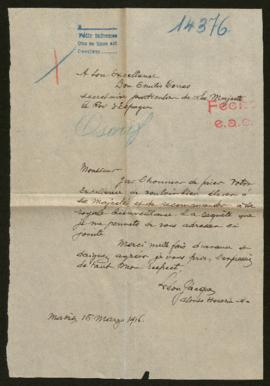 14376
A Son Excellence
Don Emilio Torres
secrétaire particulier de Sa Majesté
le Roi d'Espagne
Fecha
e.a.c.
Monsieur
J'ai l'honneur de prier Votre
Excellence de vouloir bien élever à
Sa Majesté et de recommander à sa
royale bienveillance la requête que
je me permets de vous adresser ci
jointe.
Merci mille fois d'avance et
daignez agréer je vous prie, l'expression
de tout mon respect.
Léon
Madrid 15 Mars 1916.